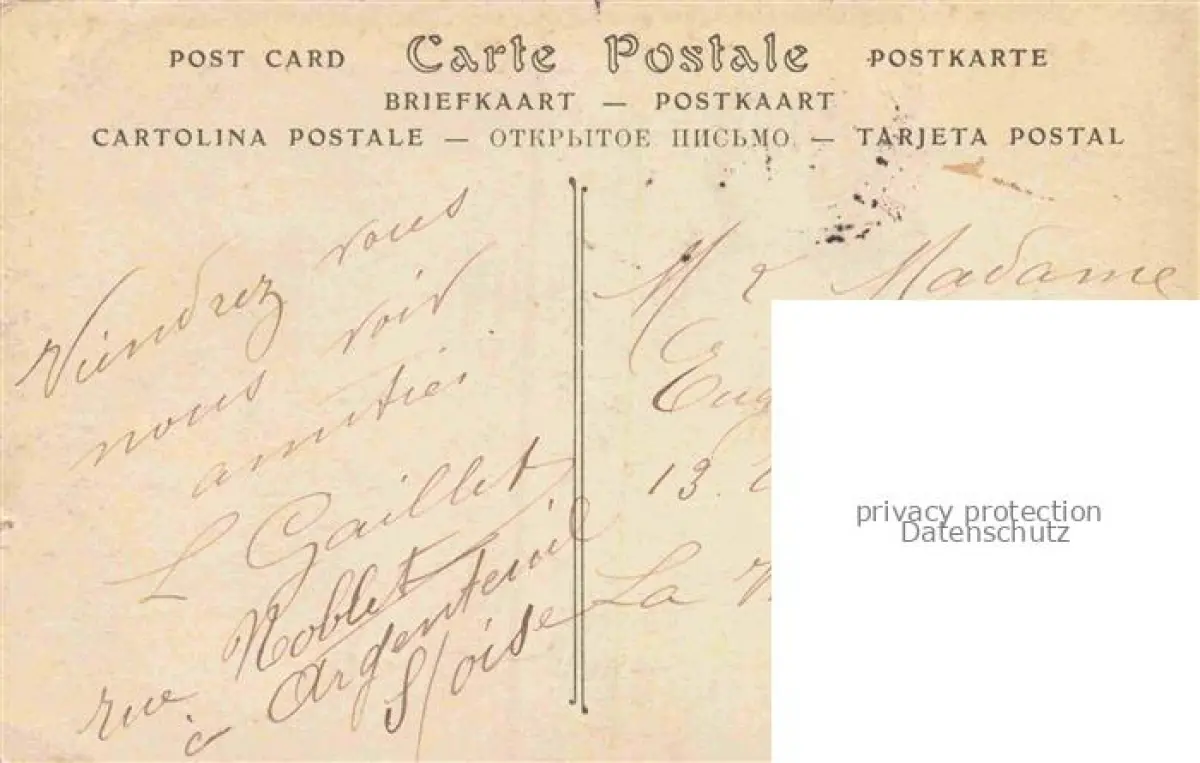 POST CARD Carte Postale POSTKARTE
BRIEFKAART — POSTKAART
CARTOLINA POSTALE — ОТКРЫТОЕ ПИСЬМО — TARJETA POSTAL
Viendrez vous
nous voir
amitiés
L Gaillet
rue Noblet
à Argenteuil
S/oise
M & Madame
Eug
13.
La
privacy protection
Datenschutz